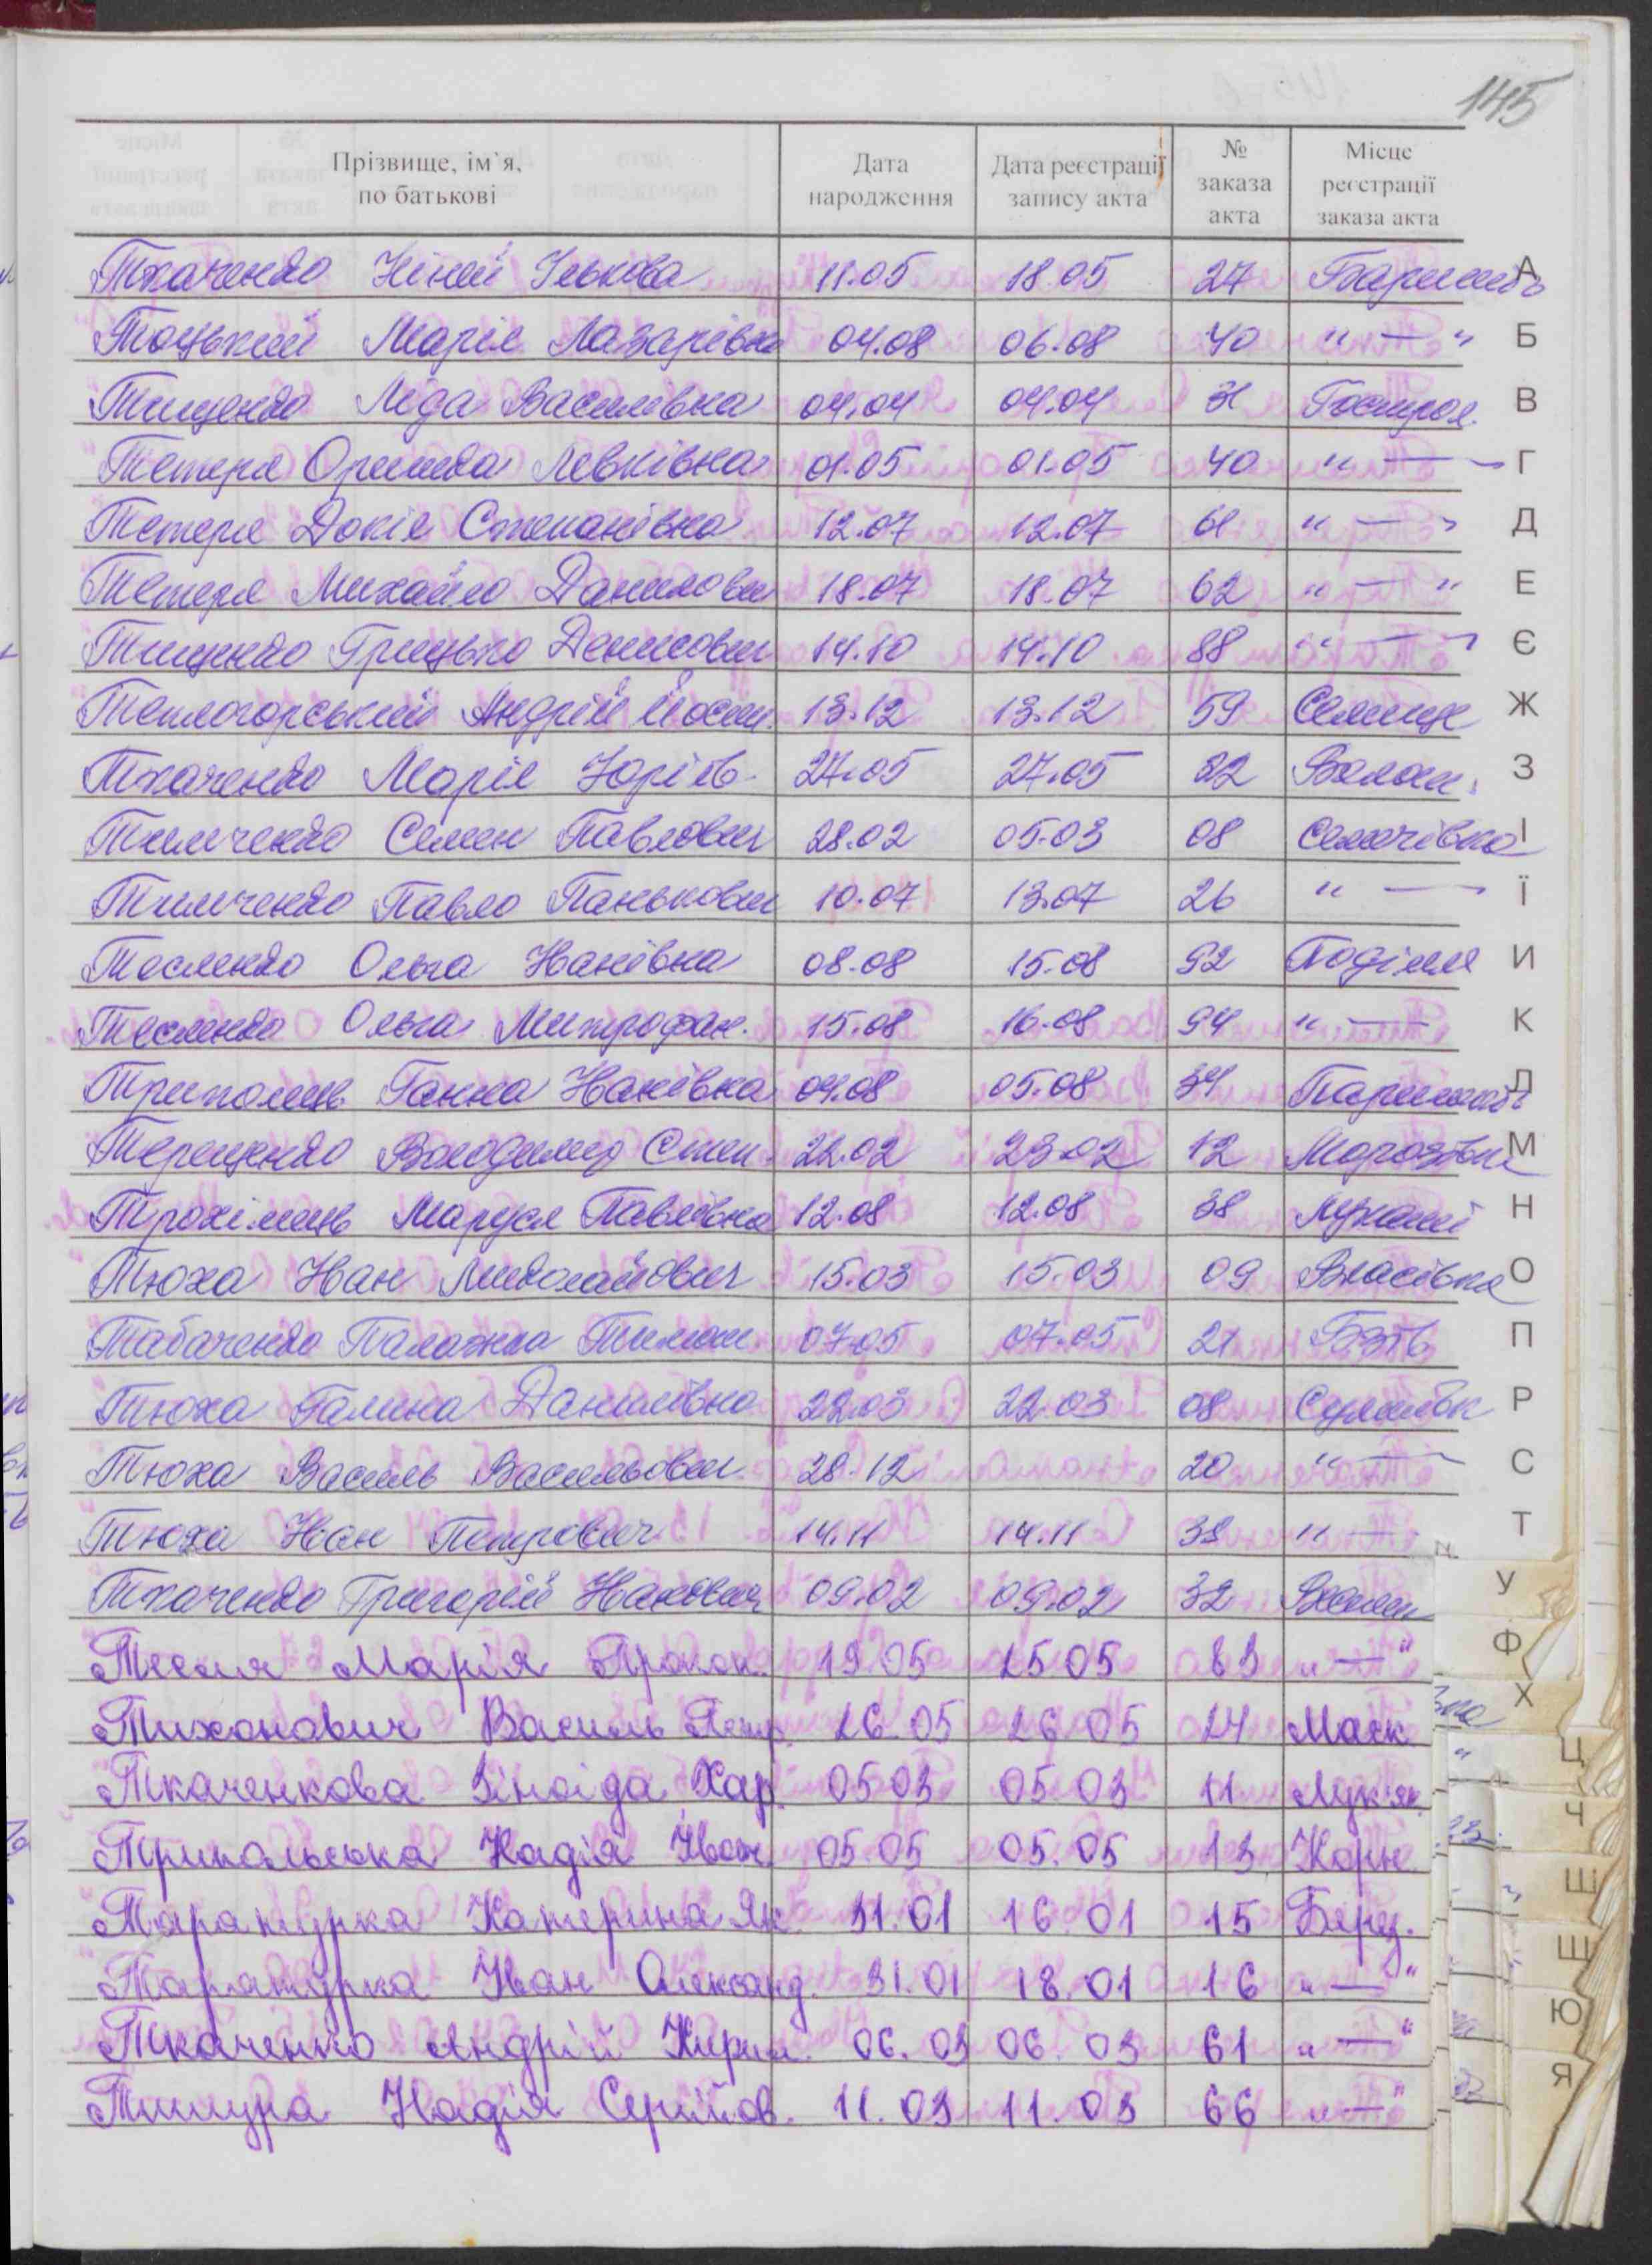 145
Прізвище, ім`я, по батькові Дата народження Дата реєстрації запису акта № заказа акта Місце реєстрації заказа акта
Ткаченко 11.05 18.05 27
Тоцький Марія Лазарівна 04.08 06.08 40 "—"
Тищенко Ліда Василівна 04.04 04.04 31 Гострол.
Тетеря Оришка Левківна 01.05 01.05 40 "—"
Тетеря Докія Степанівна 12.07 12.07 61 "—"
Тетеря Михайло Данилович 18.07 18.07 62 "—"
Тищенко Грицько Денисович 14.10 14.10 88 "—"
Теплогорський Андрій Йосип. 13.12 13.12 59 Селище
Ткаченко Марія Юріїв. 27.05 27.05 22 Волош.
Тимченко Семен Павлович 28.02 05.03 08 Семачівка
Тимченко Павло Панькович 10.07 13.07 26 "—"
Тесленко Ольга Іванівна 08.08 15.08 92 Поділля
Тесленко Ольга Митрофан. 15.08 16.08 94 "—
Триполець Ганна Іванівна 04.08 05.08 34
Терещенко Володимир Степ. 22.02 23.02 12 Морозівка
Трохімець Маруся Павлівна 12.08 12.08 38 Лукаші
Тюха Іван Миколайович 15.03 15.03 09 Власівка
Табаченко Палажка Тимош. 07.05 07.05 21 БЗТВ
Тюха Галина Данилівна 22.03 22.03 08 Сулимівк
Тюха Василь Васильович 28.12 20 "—
Тюха Іван Петрович 14.11 14.11 38 "—
Ткаченко Григорій Іванович 09.02 09.02 32
Тесля Марія Прокоп. 19 05 25 05 83 "—"
Тихонович Василь Петр. 26.05 26.05 24 Маск.
Ткаченкова Зіноіда Хар. 05 03 05 03 11 Лук'ян.
Трипольська Надія Іван. 05 05 05.05 13 Корн.
Таратурка Катерина Як. 31.01 16 01 15 Берез.
Таратурка Іван Олександ. 31.01 18.01 16 "—"
Ткаченко Андрій Кирил. 06.03 06.03 61 "—"
Тишура Надія Сергіїов. 11.03 11.03 66 "—"
А
Б
В
Г
Д
Е
Є
Ж
З
І
Ї
И
К
Л
М
Н
О
П
Р
С
Т
У
Ф
Х
Ц
Ч
Ш
Щ
Ю
Я